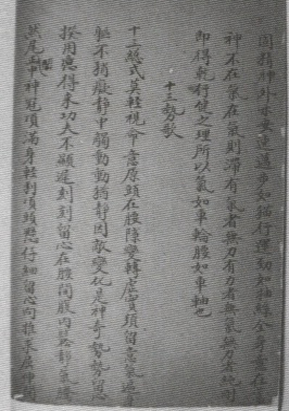 固精神外示安逸邁步如猫行運動如抽絲全身意在
神不在氣在氣則滯有氣者無力有力者無氣無力者純剛
即得乾行健之理所以氣如車輪腰如車軸也
十三势歌
十三總式莫輕視命意原頭在腰隙變轉虛實須留意氣遍身
軀不稍癡靜中觸動動猶靜因敵變化是神奇勢勢留心
揆用意得來功夫不顯遲刻刻留心在腰間腹内鬆靜氣騰
然尾閭中神冠頂滿身輕利頂頭懸仔細留心向推求屈伸